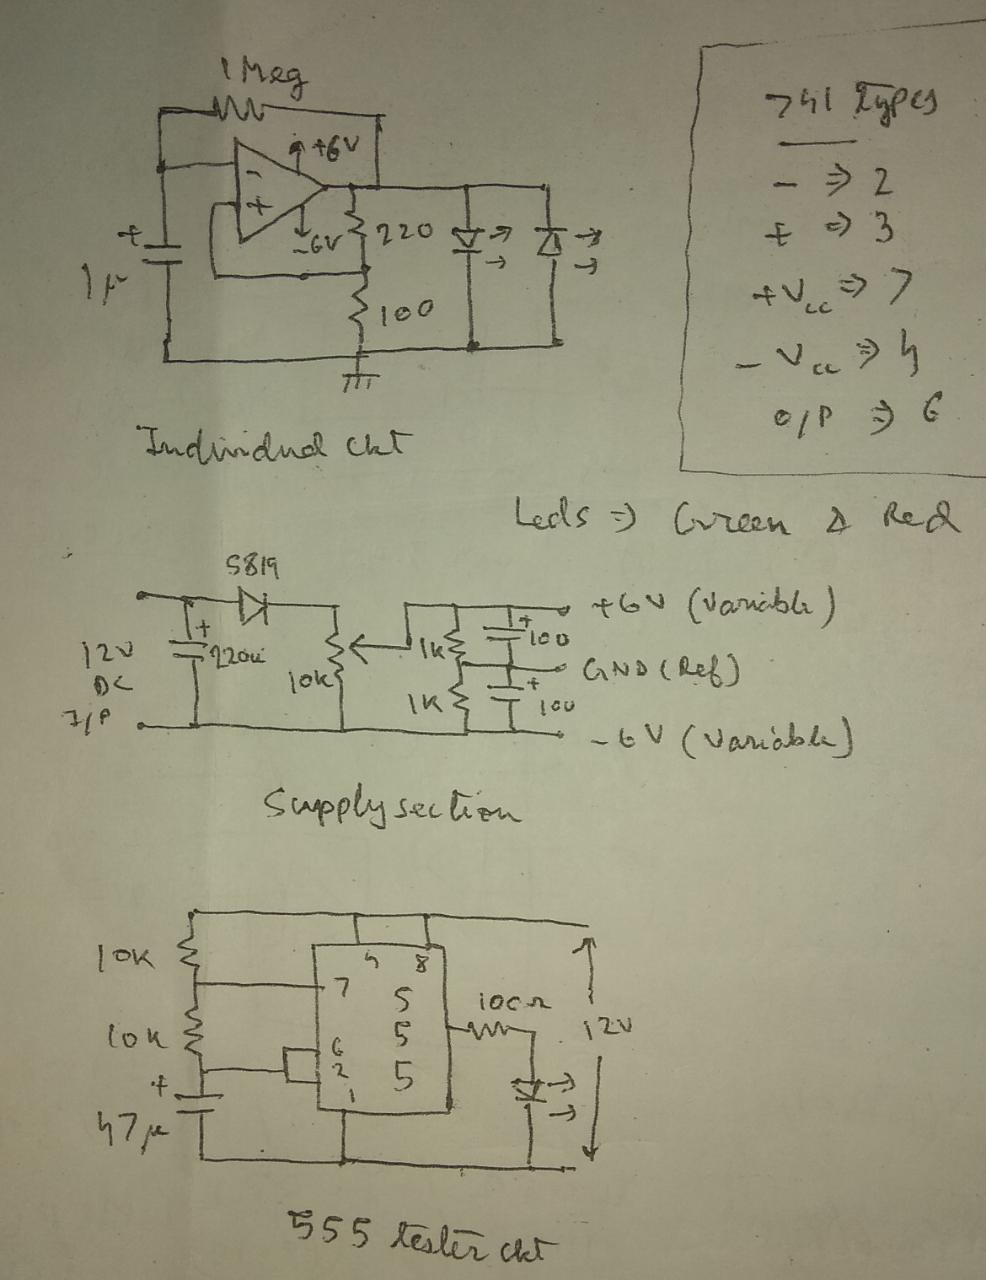 1 Meg
+6V
-
+
-6V
+
1µ
220
100
Individual ckt
741 Types
- ⇒ 2
+ ⇒ 3
+Vcc ⇒ 7
- Vcc ⇒ 4
O/P ⇒ 6
Leds ⇒ Green & Red
5819
12V
DC
I/P
+
220u
10k
1k
1k
+
100
+
100
+6V (Variable)
GND (Ref)
-6V (Variable)
Supply section
10k
10k
+
47µ
4
8
7
6
2
1
5
5
5
100Ω
12V
555 tester ckt